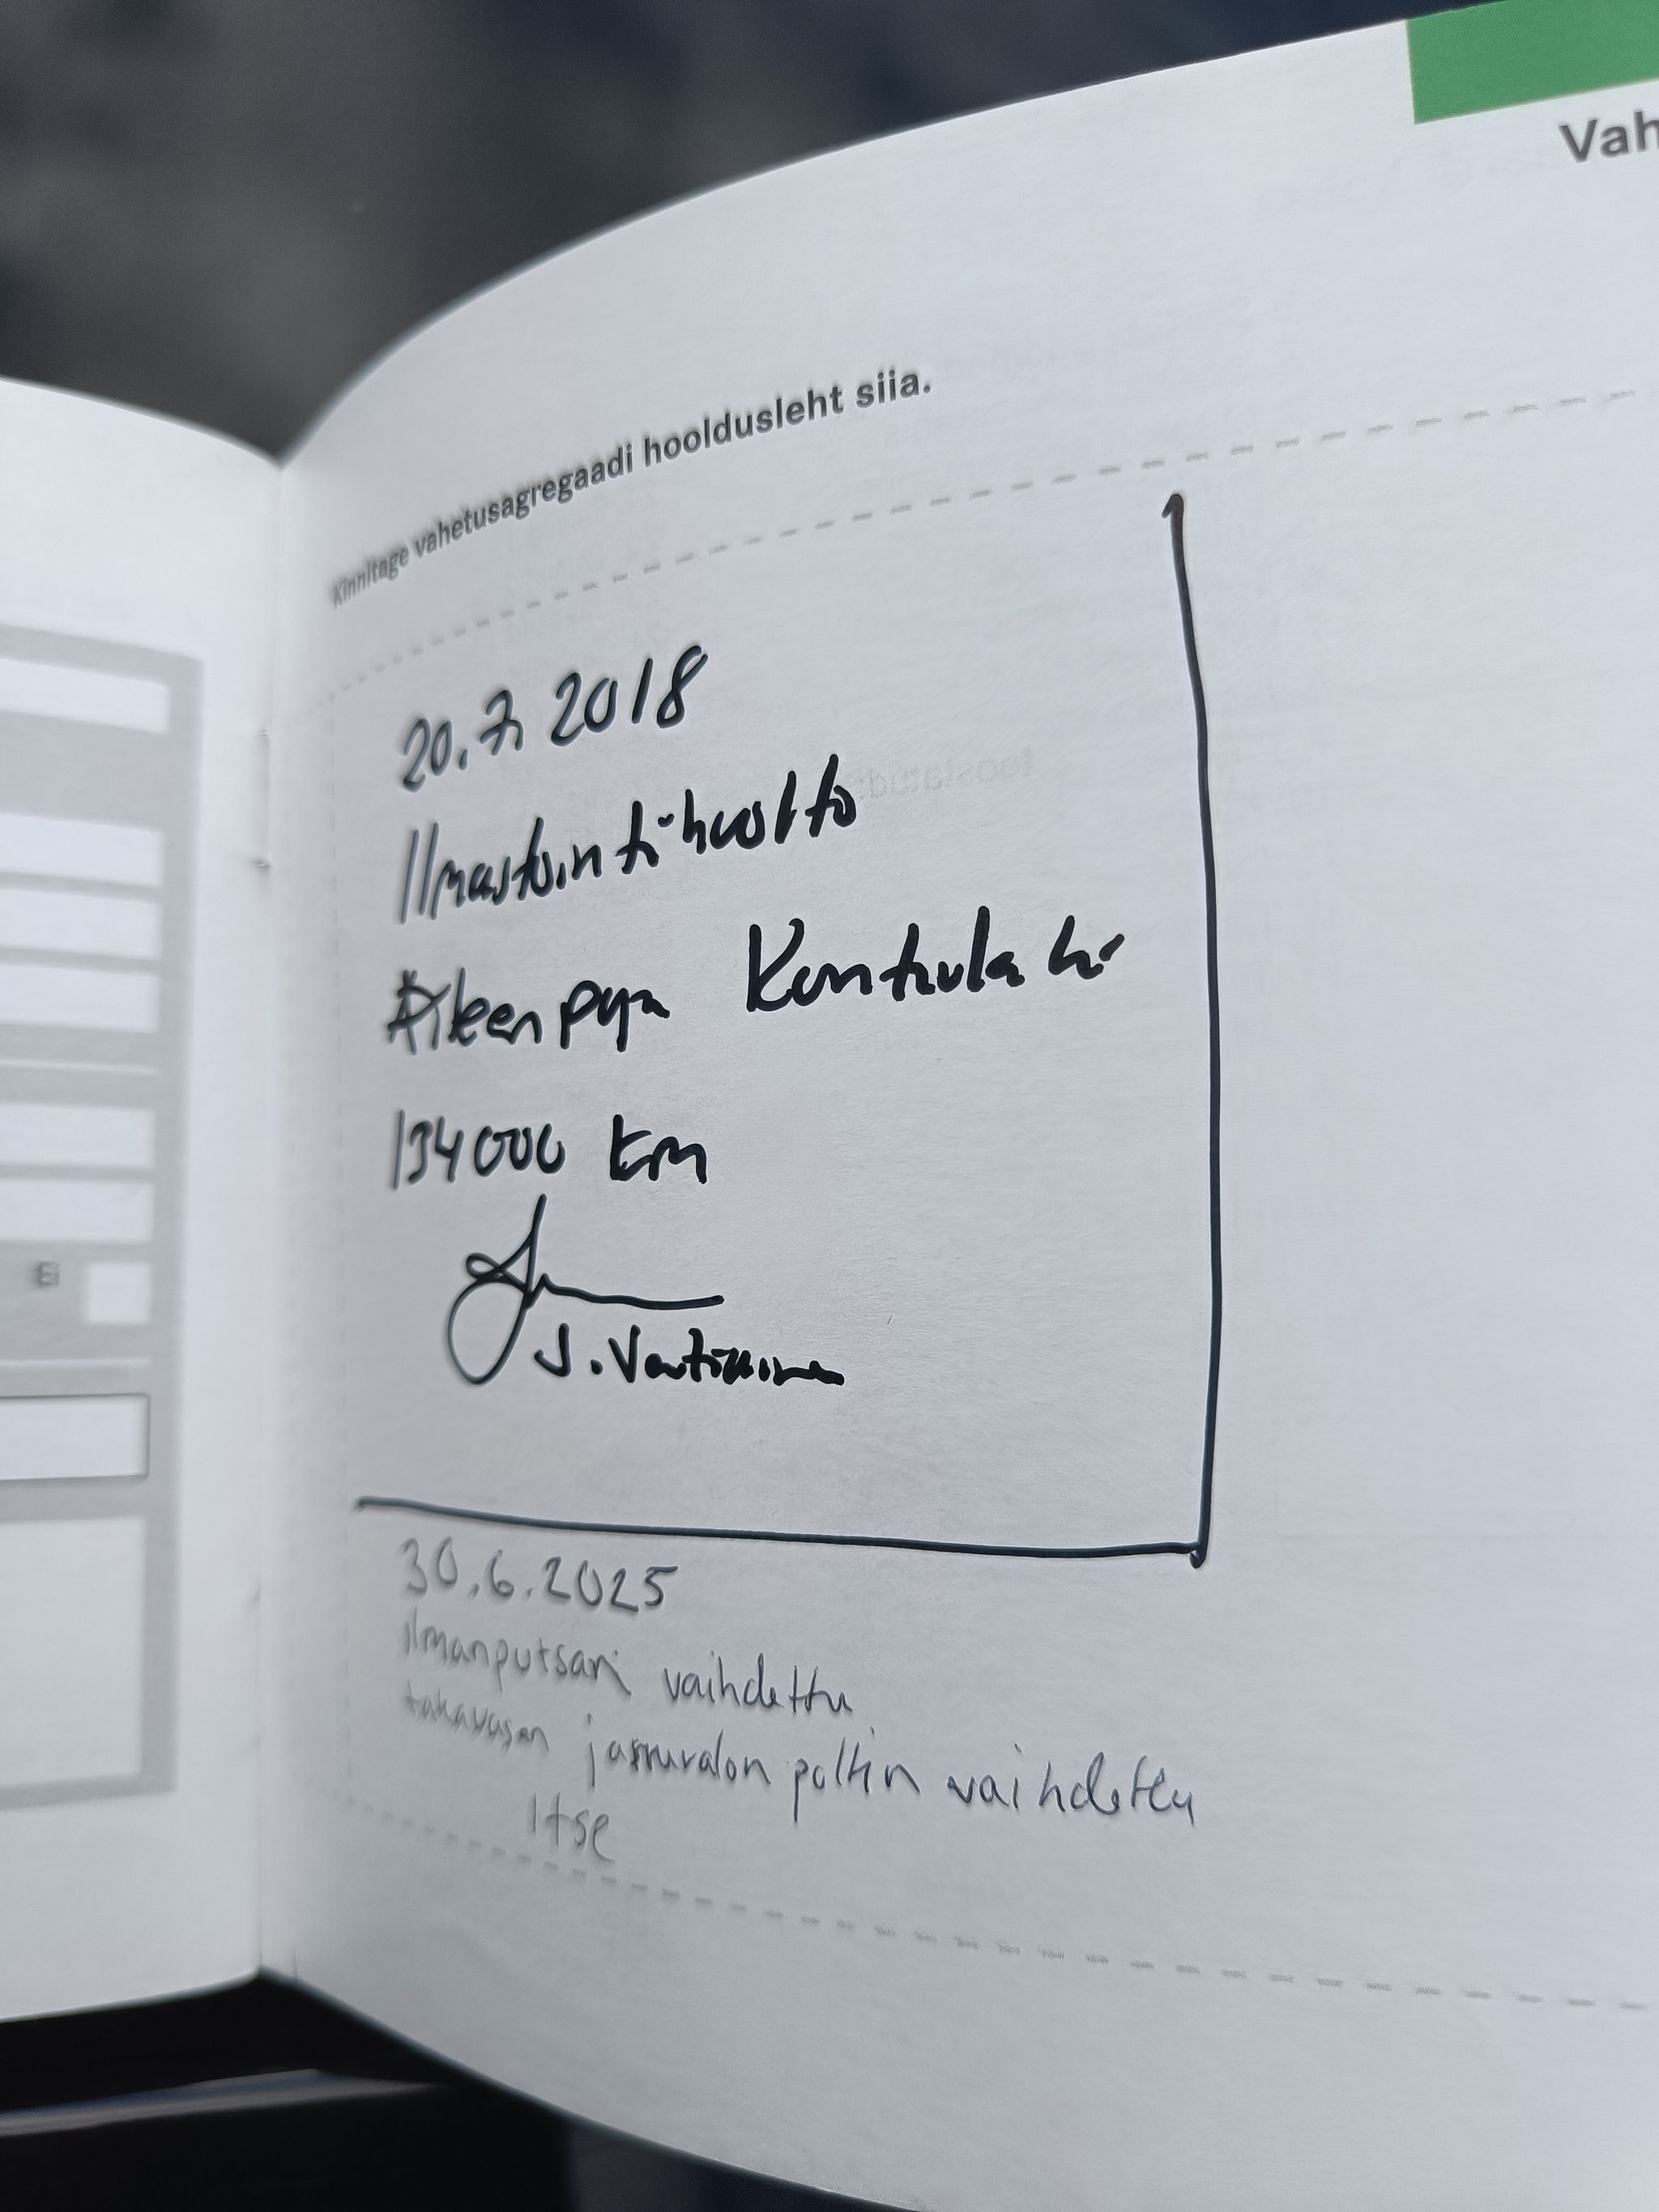 Vah
Kinnitage vahetusagregaadi hooldusleht siia.
20.7. 2018
Ilmastointihuolto
Kontrula
134000 km
J.
Ei
30.6.2025
ilmanputsari vaihdettu
takavasen jarruvalon polttin vaihdettu
Itse